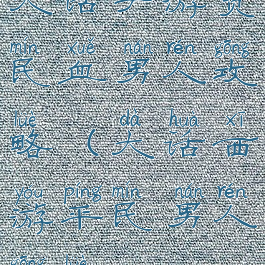 mín xuè nán rén gōng
民血男人攻
lüè dà huà xī
略(大话西
yóu píng mín nán rén
游平民男人
gōng lüè